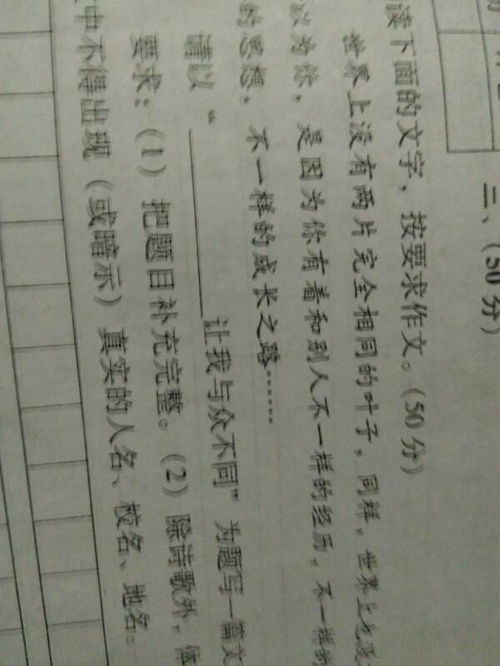 三、(50分)
读下面的文字，按要求作文。(50分)
世界上没有两片完全相同的叶子，同样，世界上也没
以为你，是因为你有着和别人不一样的经历，不一样的
的思想，不一样的成长之路……
请以“________让我与众不同”为题写一篇文
要求：(1)把题目补充完整。(2)除诗歌外，体
中不得出现（或暗示）真实的人名、校名、地名。